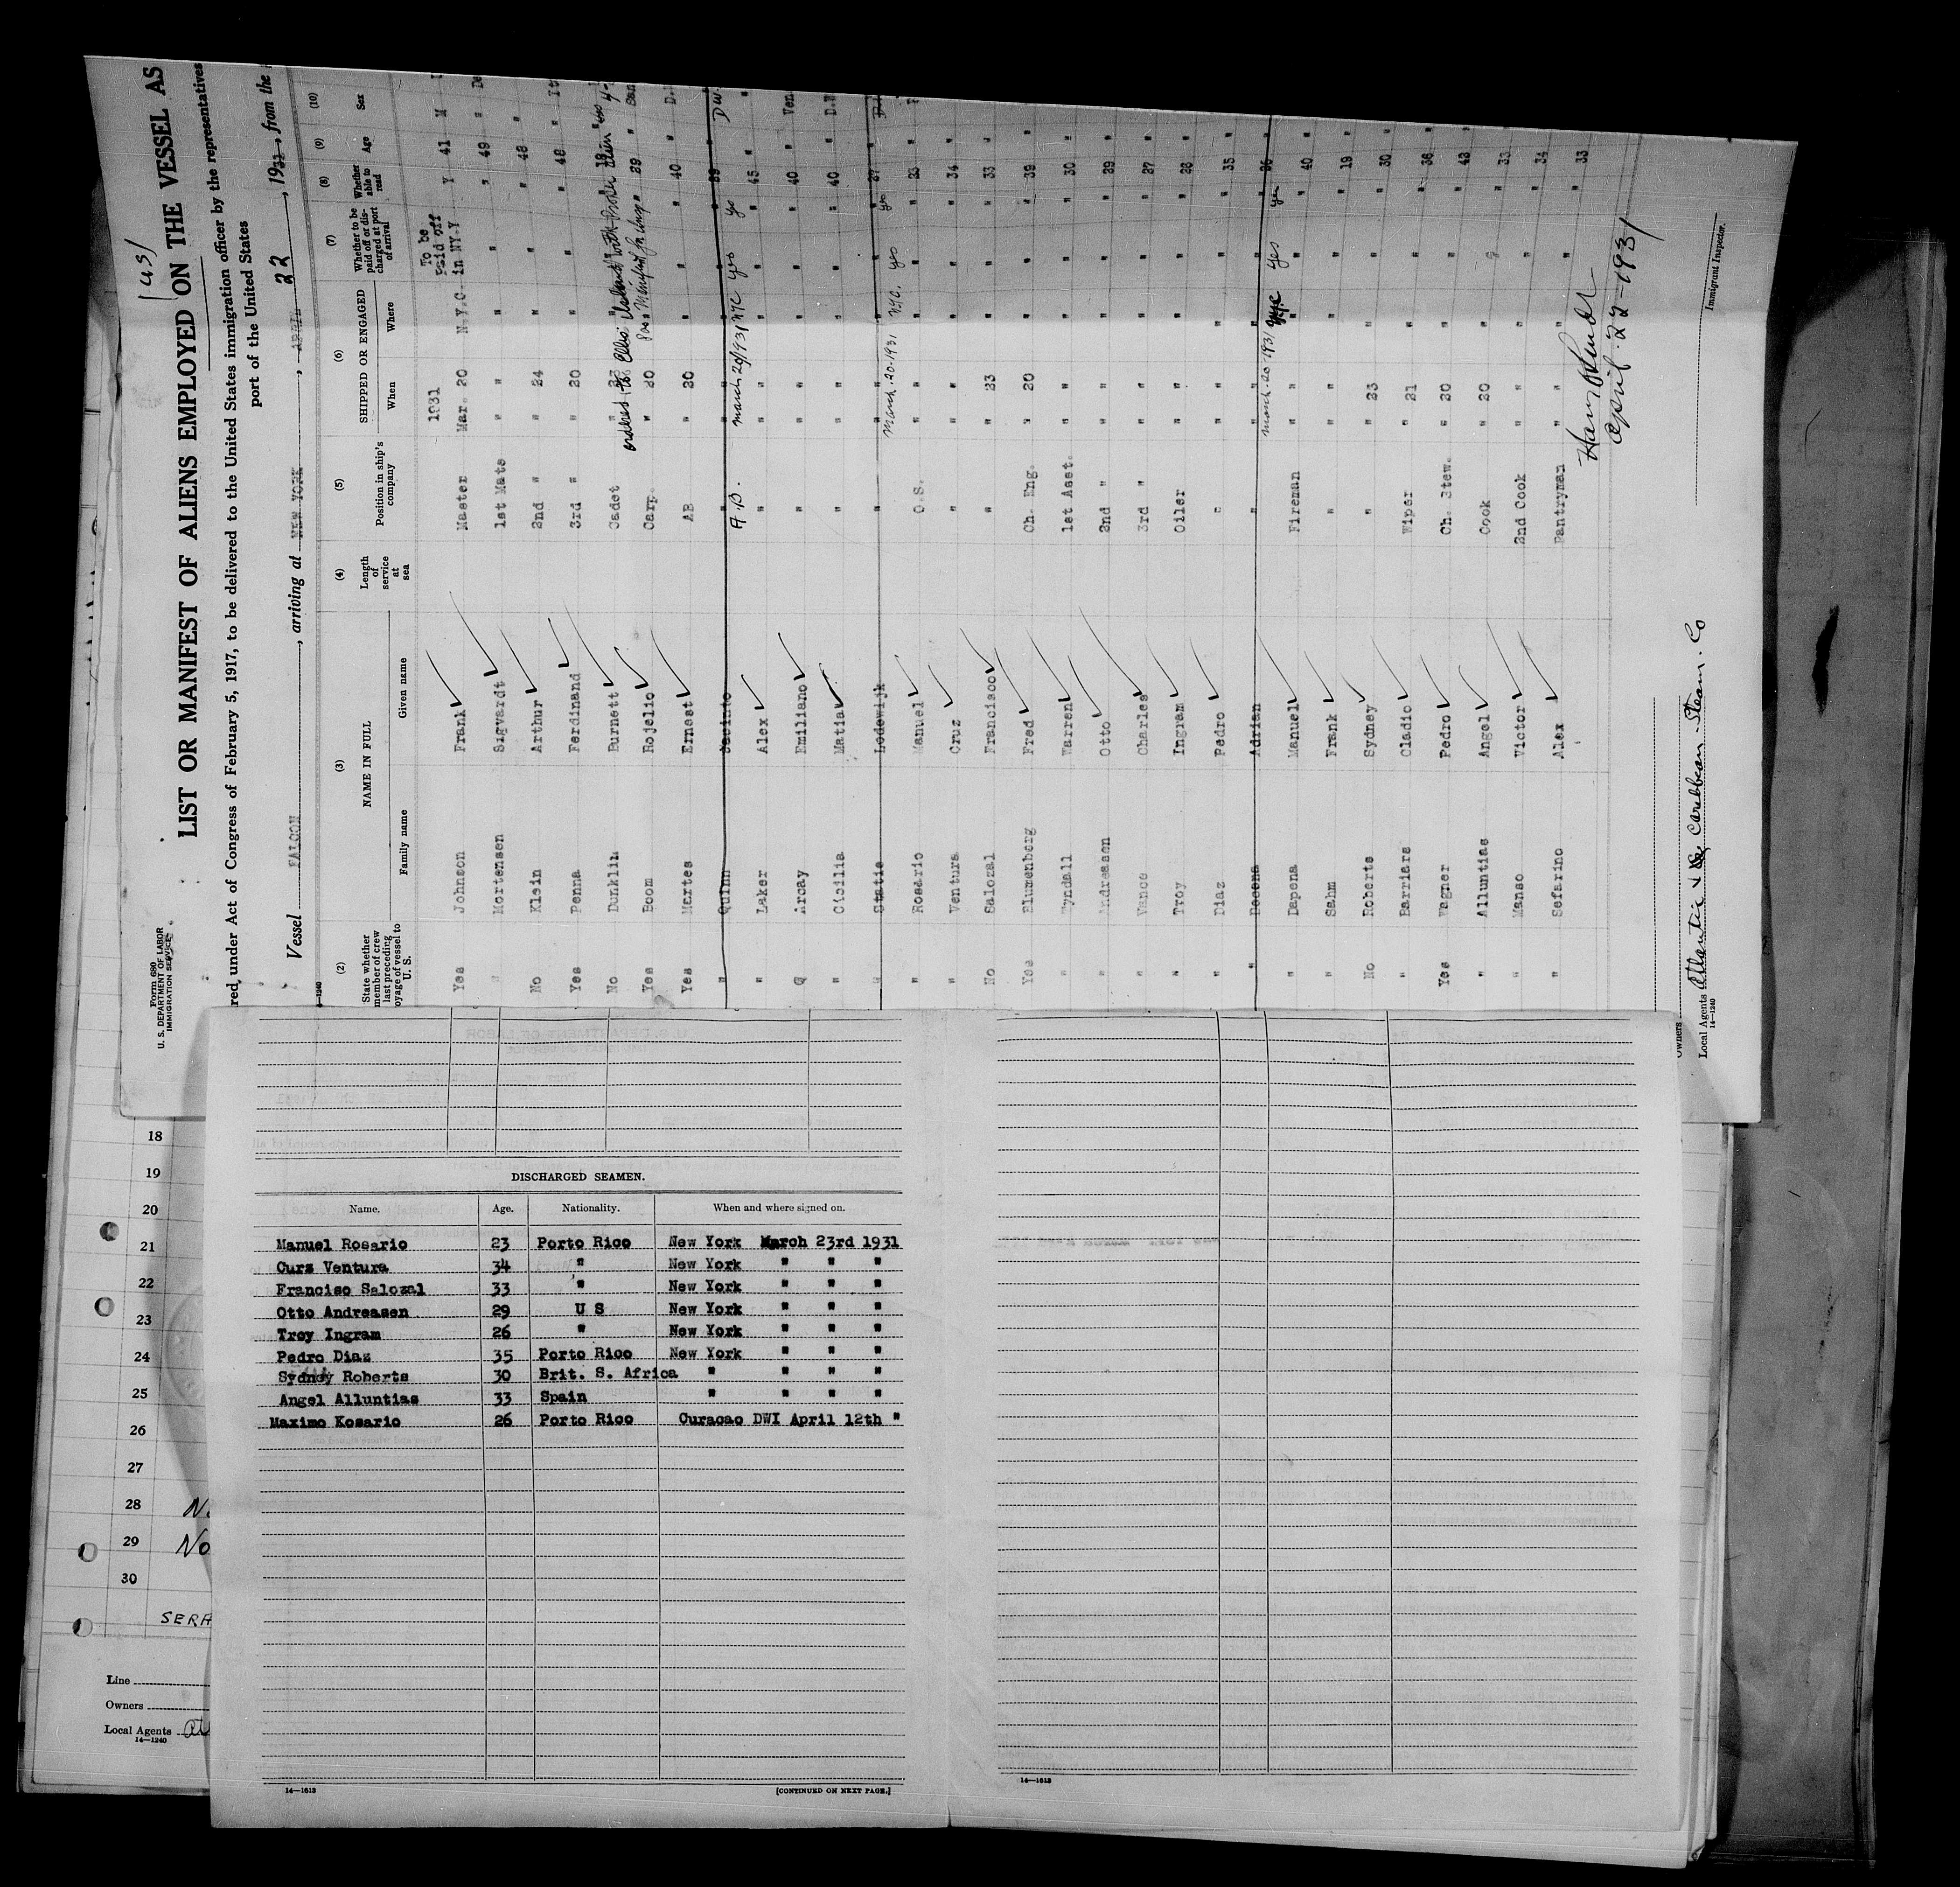 Form 680
U. S. DEPARTMENT OF LABOR
IMMIGRATION SERVICE
LIST OR MANIFEST OF ALIENS EMPLOYED ON THE VESSEL AS
red, under Act of Congress of February 5, 1917, to be delivered to the United States immigration officer by the representatives
port of the United States
Vessel FALCON, arriving at NEW YORK, APRIL 22, 1931, from the
(2) (3) (4) (5) (6) (7) (8) (9) (10)
State whether member of crew last preceding voyage of vessel to U. S. NAME IN FULL Family name Given name Length of service at sea Position in ship's company SHIPPED OR ENGAGED When Where Whether to be paid off or discharged at port of arrival Whether able to read Age Sex
1931 To be Paid off
Yes Johnson Frank Master Mar. 20 N.Y.C. in NY Y Y 41 M
" Mortensen Sigvardt 1st Mate " " " " " 49 "
No Klein Arthur 2nd " " 24 " " " 48 "
Yes Penna Ferdinand 3rd " " 20 " " " 48 "
No Dunklin Burnett Cadet
Yes Boom Rojelio Carp. " 20 " 29 "
Yes Martes Ernest AB " 20 " " " 40 "
" Quinn Jacinto A.B. March 20/1931 NYC yes yo 29
" Laker Alex " " " " " " 45 "
Arcay Emiliano " " " " " " 40 "
" Cicilia Matia " " " " " " 40 "
" Statie Lodewijk " March.20.1931 NYC. yes yes 27
" Rosario Manuel O.S. " " " " " 23
" Ventura Cruz " " " " " " 34
No Salozal Francisco " " 23 " " " 33
Yes Blumenberg Fred Ch. Eng. " 20 " " " 39 "
" Tyndall Warren 1st Asst. " " " " " 30 "
" Andreasen Otto 2nd " " " " " " 29 "
" Vance Charles 3rd " " " " " " 27 "
" Troy Ingram Oiler " " " " " 26 "
" Diaz Pedro " " " " " " 35 "
" Decena Adrian " March.20.1931 NYC yes yes 26
" Dapena Manuel Fireman " " " " " 40 "
" Sahm Frank " " " " " " 19 "
No Roberts Sydney " " 23 " " " 30 "
" Barriars Cladio Wiper " 21 " " " 36 "
Yes Wagner Pedro Ch. Stew. " 20 " " " 43 "
" Alluntias Angel Cook " 20 " " " 33 "
" Manso Victor 2nd Cook " " " " " 34 "
" Sefarino Alex Pantryman " " " " " 33
April. 22-1931
Immigrant Inspector.
Owners
Local Agents Atlantic & Caribbean Steam. Co
14—1240
18
19
20
21
22
23
24
25
26
27
28
29 No
30
Line
Owners
Local Agents
14—1240
DISCHARGED SEAMEN.
Name. Age. Nationality. When and where signed on.
Manuel Rosario 23 Porto Rico New York March 23rd 1931
Curz Ventura 34 " New York " " "
Franciso Salozal 33 " New York " " "
Otto Andreasen 29 U S New York " " "
Troy Ingram 26 " New York " " "
Pedro Diaz 35 Porto Rico New York " " "
Sydney Roberts 30 Brit. S. Africa " " " "
Angel Alluntias 33 Spain " " " "
Maximo Kosario 26 Porto Rico Curacao DWI April 12th "
14—1613 [CONTINUED ON NEXT PAGE.]
14—1613